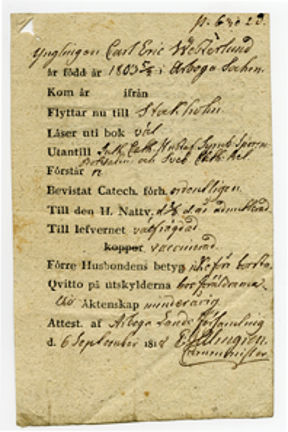 p. 6 no 23.
Ynglingen Carl Eric Westerlund
är född år 1803 5/2 i Arboga Sochn.
Kom år ifrån
Flyttar nu till Stockholm.
Läser uti bok väl
Utantill Luth. Cath. Hustaf. Symb.
och Sveb. Cath.
Förstår
Bevistat Catech. förh. ordentligen
Till den H. Nattv. admitterad.
Till lefvernet välfrägdad
koppor vaccinerad.
Förre Husbondens betyg
Qvitto på utskylderna hos föräldrarna
Äktenskap minderårig.
Attest. af Arboga Lands Församling
d. 6 September 1818
Comminister.